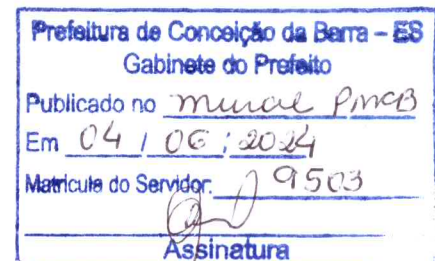 Prefeitura de Conceição da Barra – ES
Gabinete do Prefeito
Publicado no mural PMCB
Em 04 / 06 / 2024
Matrícula do Servidor: 9503
Assinatura